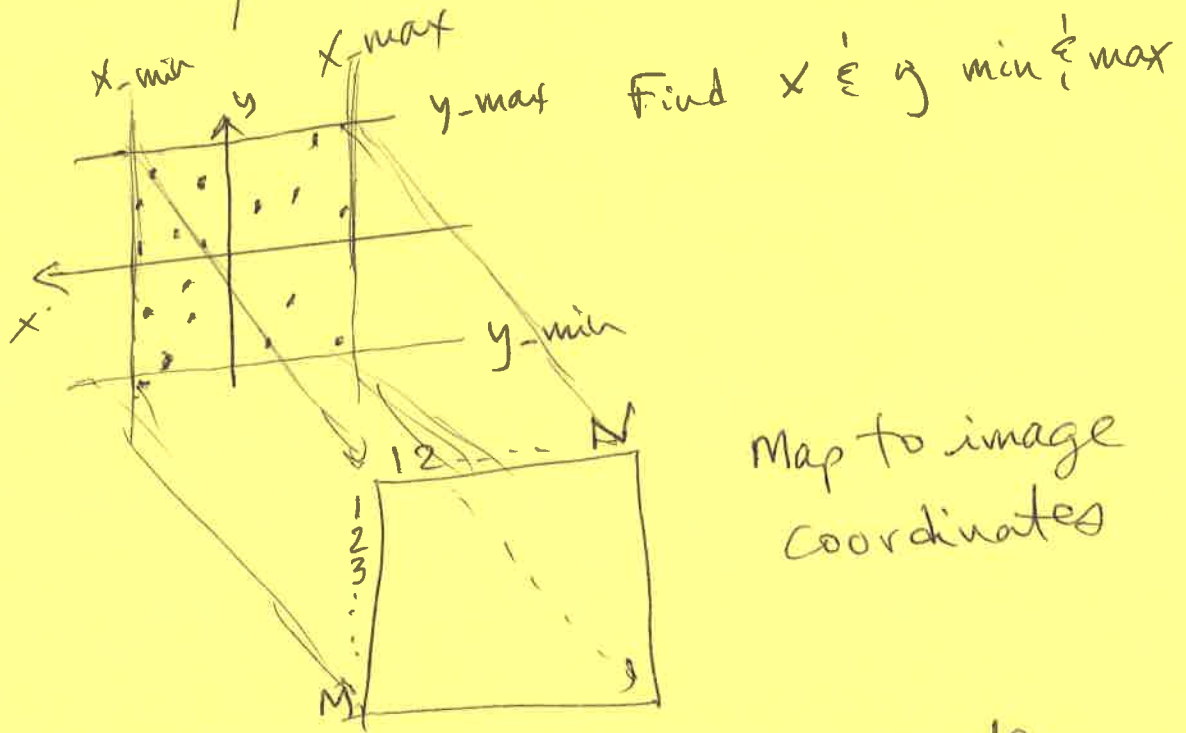 x_min
x_max
y
y_max Find x & y min & max
x
y_min
1 2 - - - - - N
1
2
3
.
.
.
M
Map to image
coordinates